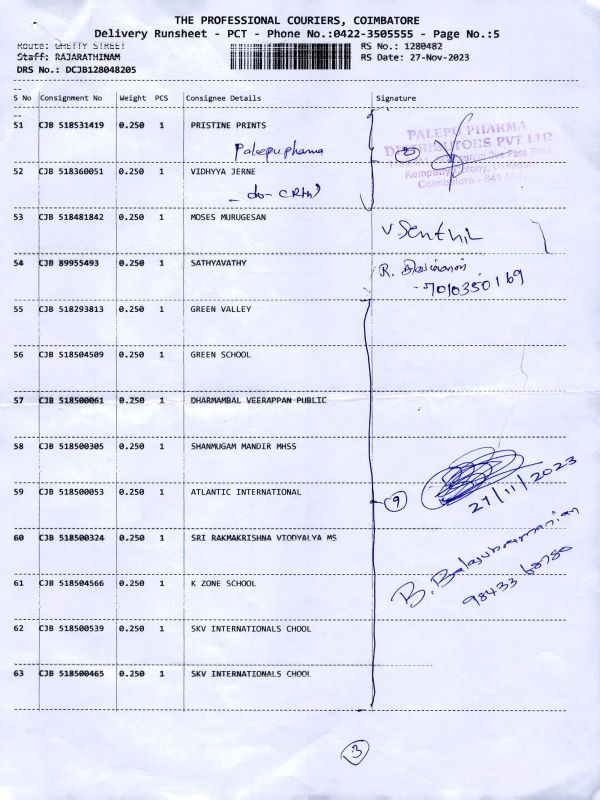 THE PROFESSIONAL COURIERS, COIMBATORE
Delivery Runsheet - PCT - Phone No.:0422-3505555 - Page No.:5
Route: GHETTY STREET
RS No.: 1280482
Staff: RAJARATHINAM
RS Date: 27-Nov-2023
DRS No.: DCJB128048205
S No Consignment No Weight PCS Consignee Details Signature
51 CJB 518531419 0.250 1 PRISTINE PRINTS
Palepu pharma
PALEPU PHARMA
DISTRIBUTORS PVT LTD
Coimbatore - 641
2
52 CJB 518360051 0.250 1 VIDHYYA JERNE
- do -
53 CJB 518481842 0.250 1 MOSES MURUGESAN
V Senthil
54 CJB 89955493 0.250 1 SATHYAVATHY
R.
7010350169
55 CJB 518293813 0.250 1 GREEN VALLEY
56 CJB 518504509 0.250 1 GREEN SCHOOL
57 CJB 518500061 0.250 1 DHARMAMBAL VEERAPPAN PUBLIC
58 CJB 518500305 0.250 1 SHANMUGAM MANDIR MHSS
59 CJB 518500053 0.250 1 ATLANTIC INTERNATIONAL
9
27/11/2023
60 CJB 518500324 0.250 1 SRI RAKMAKRISHNA VIODYALYA MS
B. Balasubramanian
61 CJB 518504566 0.250 1 K ZONE SCHOOL
62 CJB 518500539 0.250 1 SKV INTERNATIONALS CHOOL
63 CJB 518500465 0.250 1 SKV INTERNATIONALS CHOOL
3